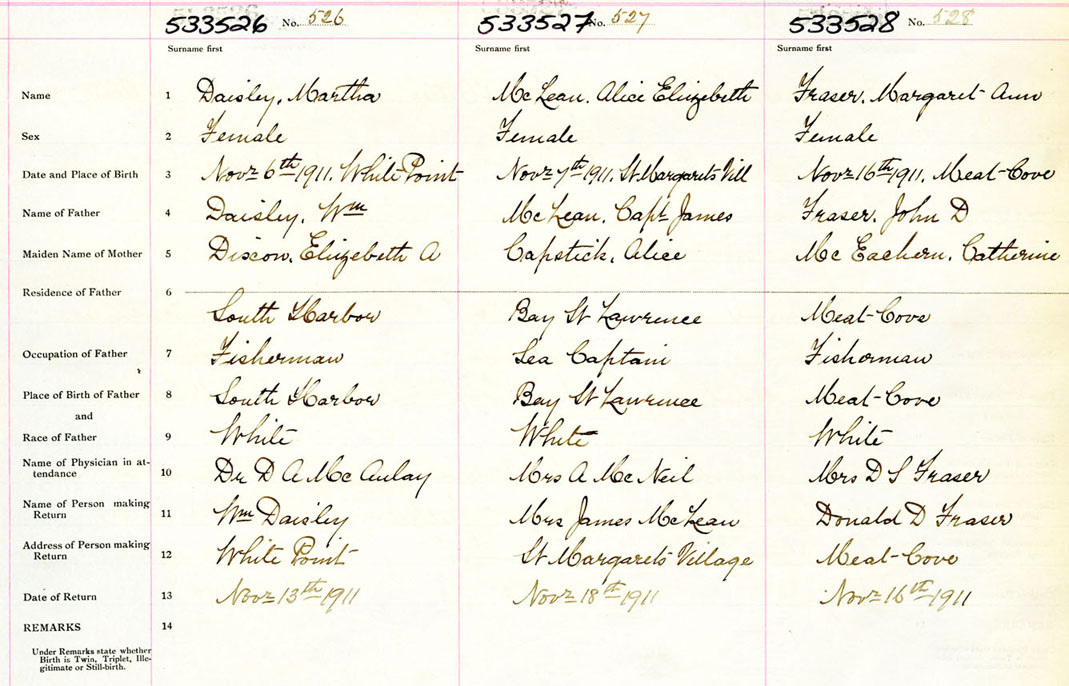 533526 No. 526 533527 No. 527 533528 No. 528
Surname first Surname first Surname first
Name 1 Daisley, Martha McLean, Alice Elizebeth Fraser, Margaret Ann
Sex 2 Female Female Female
Date and Place of Birth 3 Novr 6th 1911. White Point Novr 7th 1911. St Margarets Vill Novr 16th 1911. Meat-Cove
Name of Father 4 Daisley, Wm McLean, Capt James Fraser, John D
Maiden Name of Mother 5 Discon, Elizebeth A Capstick, Alice McEachern, Catherine
Residence of Father 6
South Harbor Bay St Lawrence Meat-Cove
Occupation of Father 7 Fisherman Sea Captain Fisherman
Place of Birth of Father 8 South Harbor Bay St Lawrence Meat-Cove
and
Race of Father 9 White White White
Name of Physician in at-
tendance 10 Dr D A McAulay Mrs A McNeil Mrs D S Fraser
Name of Person making
Return 11 Wm Daisley Mrs James McLean Donald D Fraser
Address of Person making
Return 12 White Point St Margarets Village Meat-Cove
Date of Return 13 Novr 13th 1911 Novr 18th 1911 Novr 16th 1911
REMARKS 14
Under Remarks state whether
Birth is Twin, Triplet, Ille-
gitimate or Still-birth.